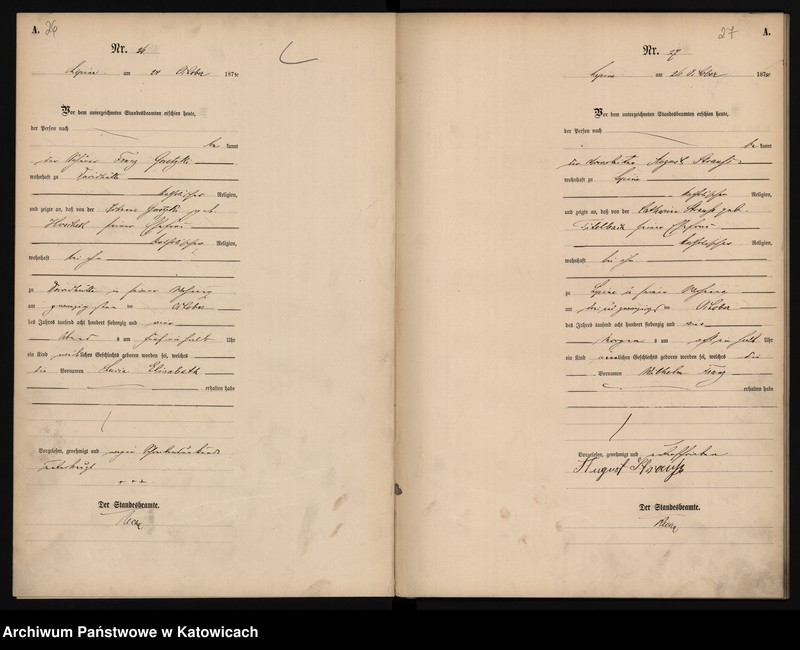 A. 26
Nr. 26
Lipine am 24 Oktober 1874
Vor dem unterzeichneten Standesbeamten erschien heute,
der Person nach
be kannt
der Franz
wohnhaft zu
katholischer Religion,
und zeigte an, daß von der Johanna geb.
seiner Ehefrau
katholischer Religion,
wohnhaft bei ihm
zu in seiner Wohnung
am zwanzigsten Oktober
des Jahres tausend acht hundert siebenzig und vier
Abends um fünf ein halb Uhr
ein Kind weiblichen Geschlechts geboren worden sei, welches
die Vornamen Maria Elisabeth
erhalten habe
Vorgelesen, genehmigt und wegen
unterkreuzt
+ + +
Der Standesbeamte.
27 A.
Nr. 27
Lipine am 26 Oktober 1874
Vor dem unterzeichneten Standesbeamten erschien heute,
der Person nach
be kannt
der August Strauß
wohnhaft zu Lipine
katholischer Religion,
und zeigte an, daß von der Catharina Strauß geb.
seiner Ehefrau
katholischer Religion,
wohnhaft bei ihm
zu Lipine in seiner Wohnung
am drei und zwanzigsten Oktober
des Jahres tausend acht hundert siebenzig und vier
Morgens um acht ein halb Uhr
ein Kind männlichen Geschlechts geboren worden sei, welches die
Vornamen Wilhelm Franz
erhalten habe
Vorgelesen, genehmigt und unterschrieben
August Strauß
Der Standesbeamte.
Archiwum Państwowe w Katowicach